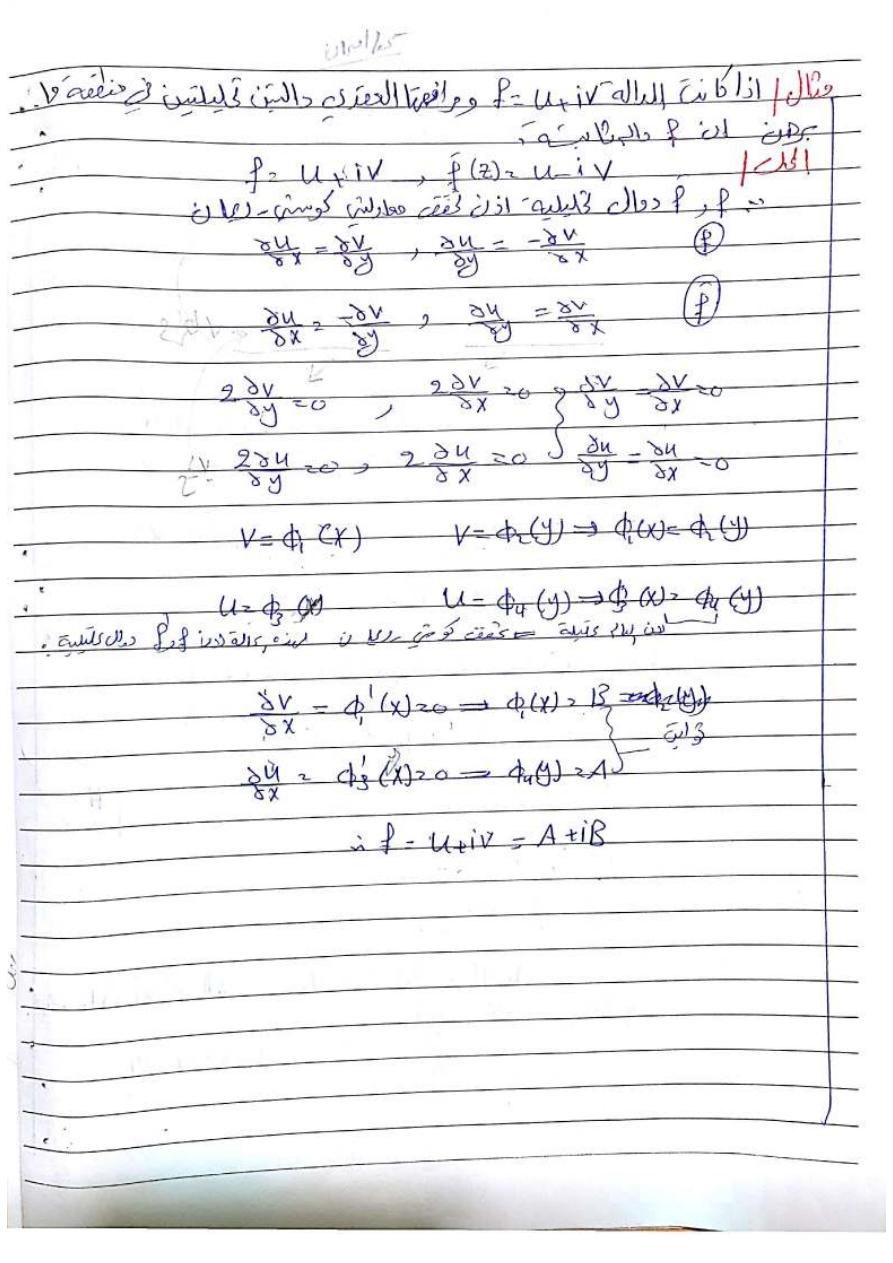 مثال/ اذا كانت الدالة f = u+iv ومرافقها العقدي دالتين تحليليتين في منطقة ما.
برهن ان f دالة ثابتة.
الحل/
f = u+iv , f̄(z) = u-iv
∵ f̄ , f دوال تحليلية اذن تحقق معادلتي كوشي-ريمان
∂u/∂x = ∂v/∂y , ∂u/∂y = -∂v/∂x (f)
∂u/∂x = -∂v/∂y , ∂u/∂y = ∂v/∂x (f̄)
2∂v/∂y = 0 , 2∂v/∂x = 0 } ∂v/∂y = ∂v/∂x = 0
2∂u/∂y = 0 , 2∂u/∂x = 0 } ∂u/∂y = ∂u/∂x = 0
V = ϕ₁(x) V = ϕ₂(y) ⇒ ϕ₁(x) = ϕ₂(y)
U = ϕ₃(x) U = ϕ₄(y) ⇒ ϕ₃(x) = ϕ₄(y)
كوشي ريمان لهذه الحالة لان f و f̄ دوال تحليلية.
∂v/∂x = ϕ₁'(x) = 0 ⇒ ϕ₁(x) = B
ثوابت
∂u/∂x = ϕ₃'(x) = 0 ⇒ ϕ₄(y) = A
∴ f = u+iv = A+iB